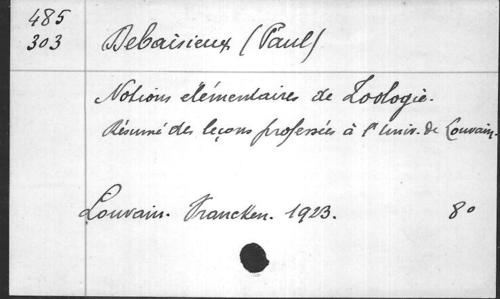 485
303
Debaisieux (Paul)
Notions élémentaires de Zoologie.
Résumé des leçons professées à l'Univ. de Louvain.
Louvain. Vrancken. 1923. 8°